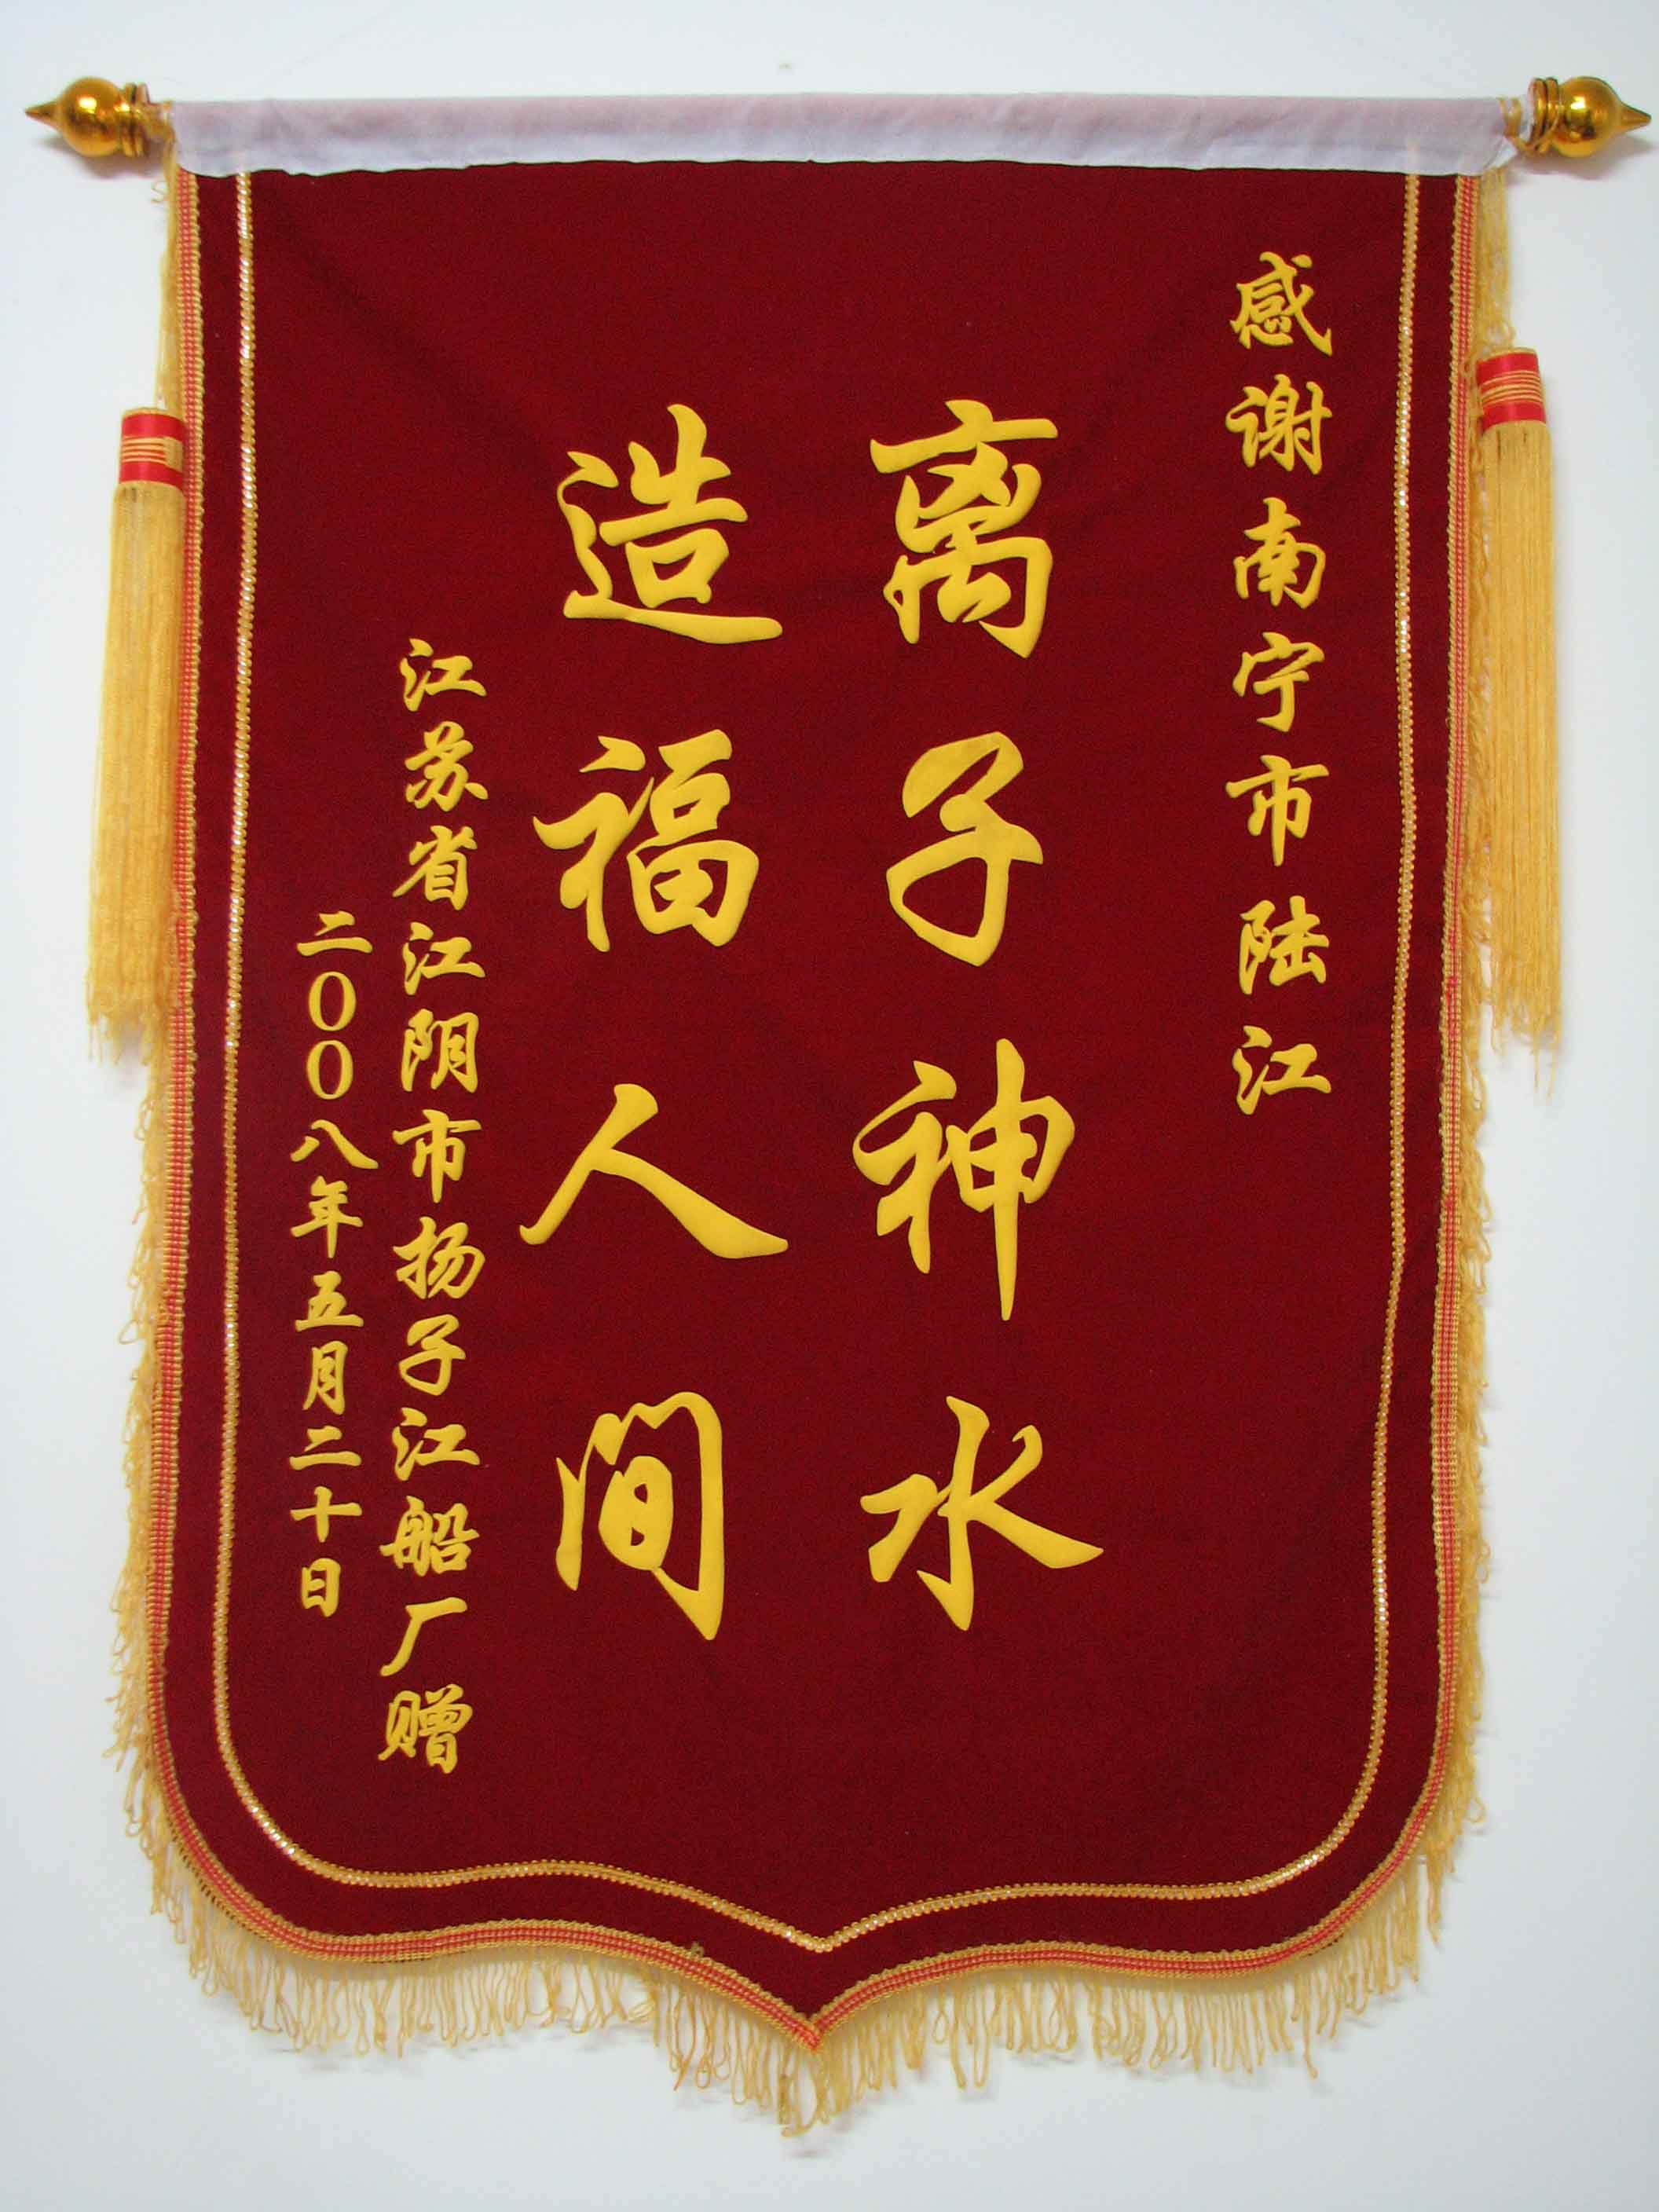 感谢南宁市陆江
离子神水
造福人间
江苏省江阴市扬子江船厂赠
二00八年五月二十日